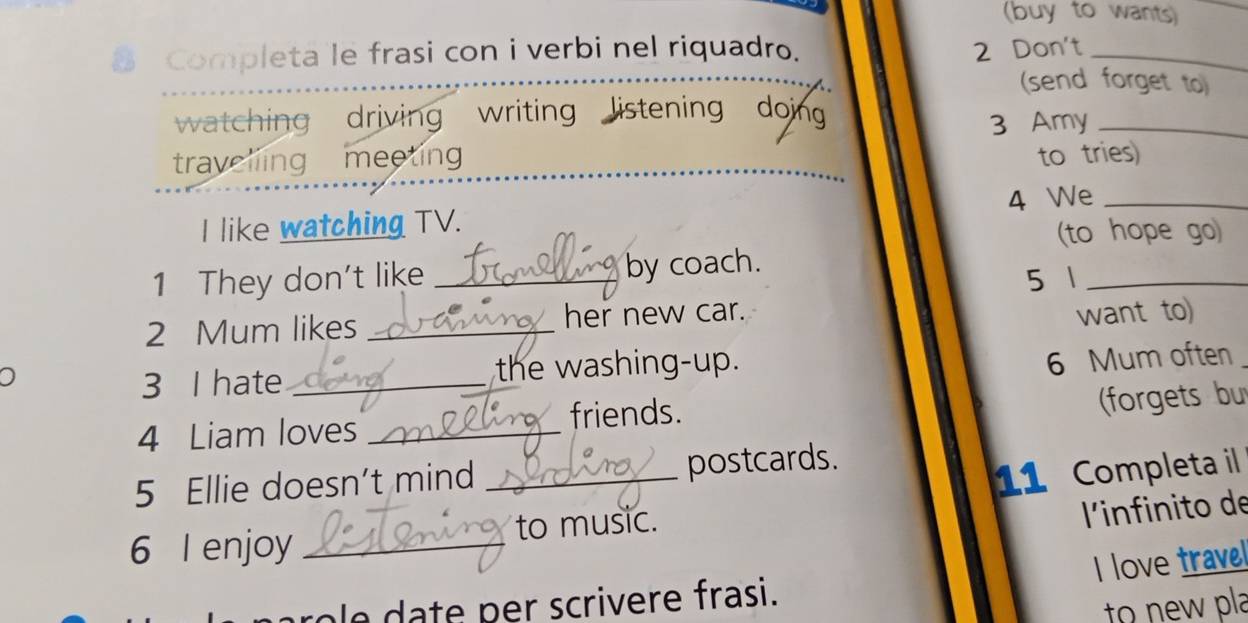 8 Completa le frasi con i verbi nel riquadro.
watching driving writing listening doing
travelling meeting
I like watching TV.
1 They don't like travelling by coach.
2 Mum likes driving her new car.
3 I hate doing the washing-up.
4 Liam loves meeting friends.
5 Ellie doesn't mind sending postcards.
6 I enjoy listening to music.
parole date per scrivere frasi.
(buy to wants)
2 Don't
(send forget to)
3 Amy
to tries)
4 We
(to hope go)
5 I
want to)
6 Mum often
(forgets bu
11 Completa il
l'infinito de
I love travel
to new pla